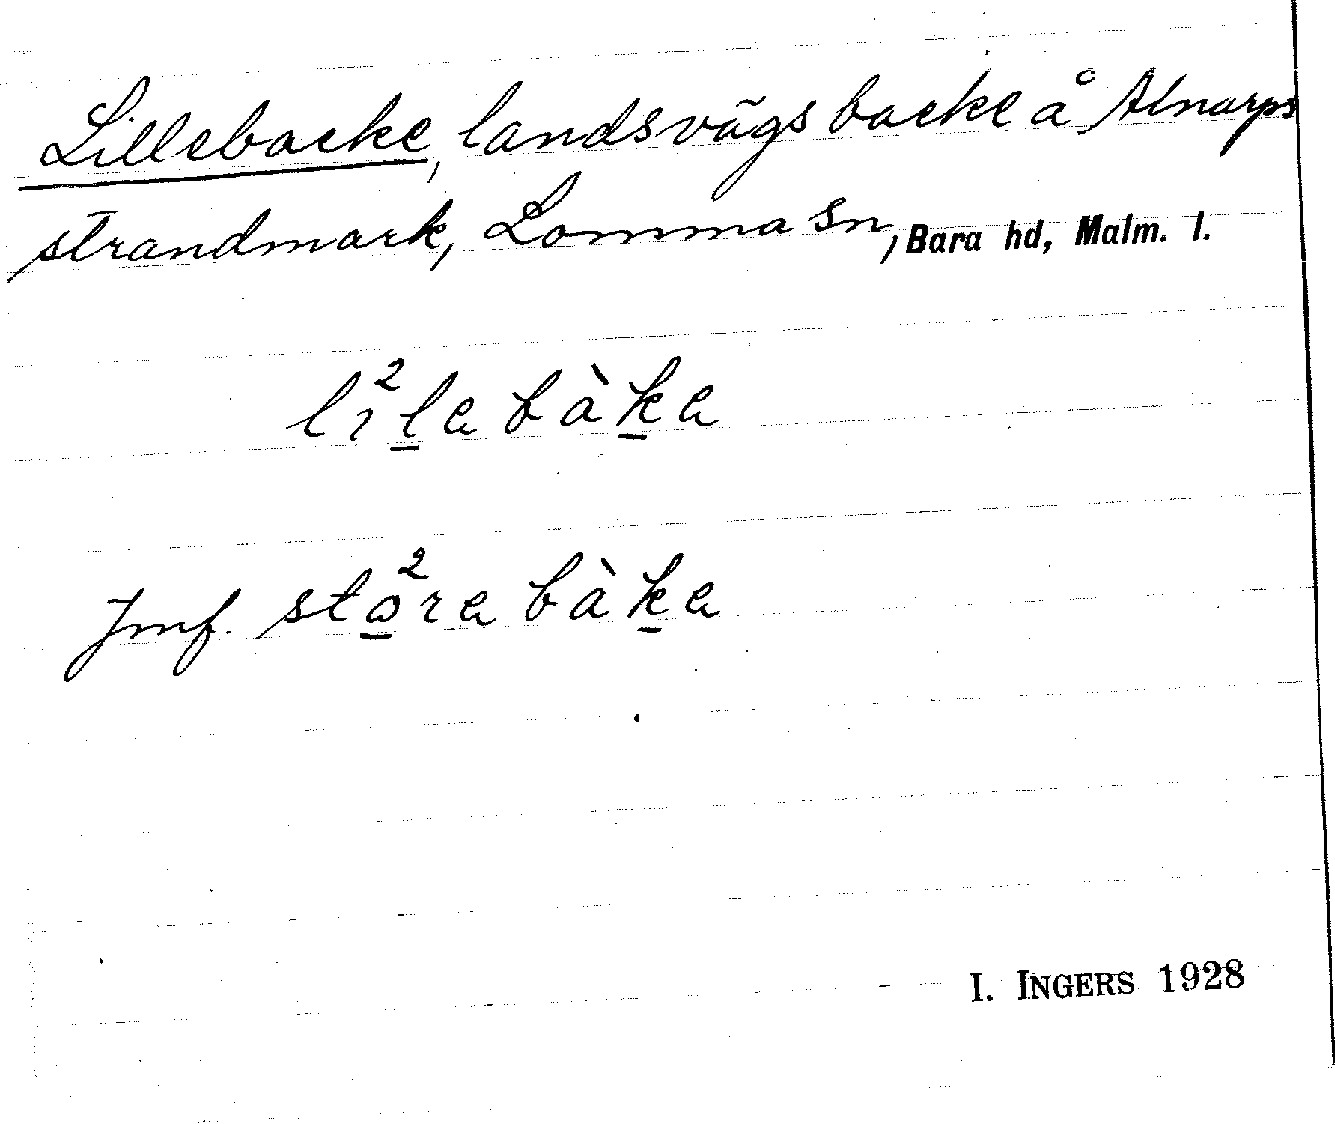 Lillebacke, landsvägsbacke å Alnarps
strandmark, Lomma sn, Bara hd, Malm. l.
lı²l̲a bàk̲a
Jmf. sto̲²ra bàk̲a
I. INGERS 1928